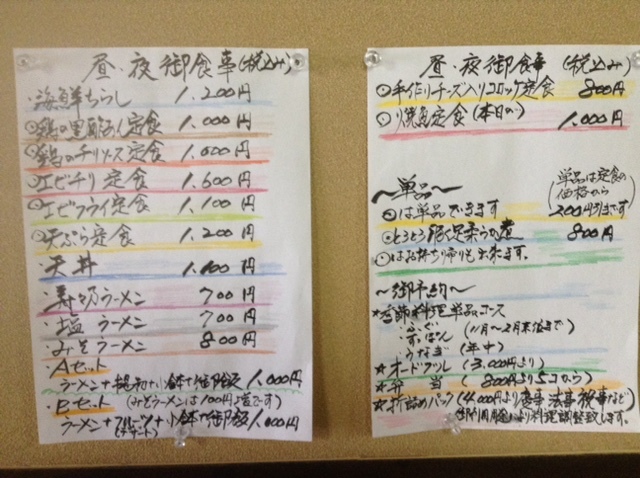 昼・夜御食事(税込み)
・海鮮ちらし 1.200円
鶏の黒酢あん定食 1.000円
鶏のチリソース定食 1.000円
エビチリ定食 1.600円
エビフライ定食 1.100円
天ぷら定食 1.200円
・天丼 円
ラーメン 700円
・塩ラーメン 700円
・みそラーメン 800円
・Aセット
ラーメン+ +小鉢+御飯 1.000円
・Bセット (みそラーメンは100円 です)
ラーメン+ +小鉢+御飯 1.000円
(デザート)
昼・夜御食事(税込み)
手作りチーズ入りコロッケ定食 800円
焼魚定食(本日の) 1.000円
〜単品〜 (単品は定食の
価格から
200円引きです)
は単品できます
とろとろ豚足柔らか煮 800円
はお持ち帰りも出来ます。
〜御予約〜
★季節料理単品・コース
・ふぐ
・すっぽん (11月〜2月末位まで)
・うなぎ (年中)
★オードブル (3,000円より)
★弁 当 (800円より5コから)
★折詰めパック(4,000円より 法事 など)
御利用 により料理調整致します。